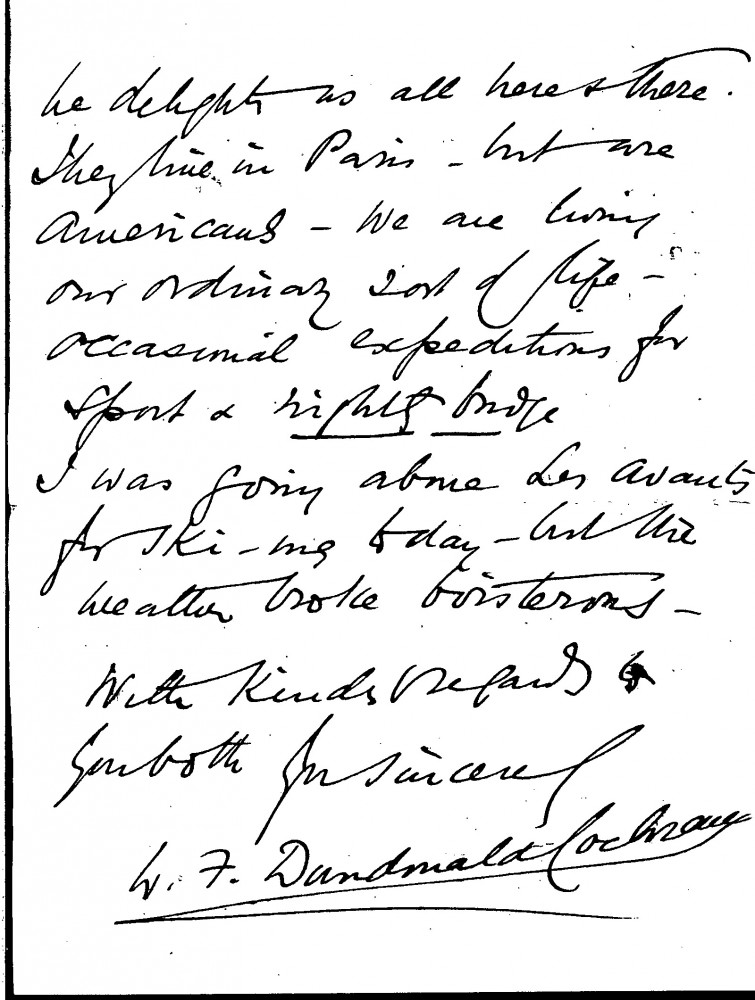 he delights us all here & there.
They live in Paris - but are
Americans - We are living
our ordinary sort of life -
occasional expeditions for
sport & nightly bridge
I was going above Les Avants
for Ski-ing today - but the
weather broke boisterous -
With Kindest regards to
you both Yr sincerely
W. F. Dundonald Cochrane